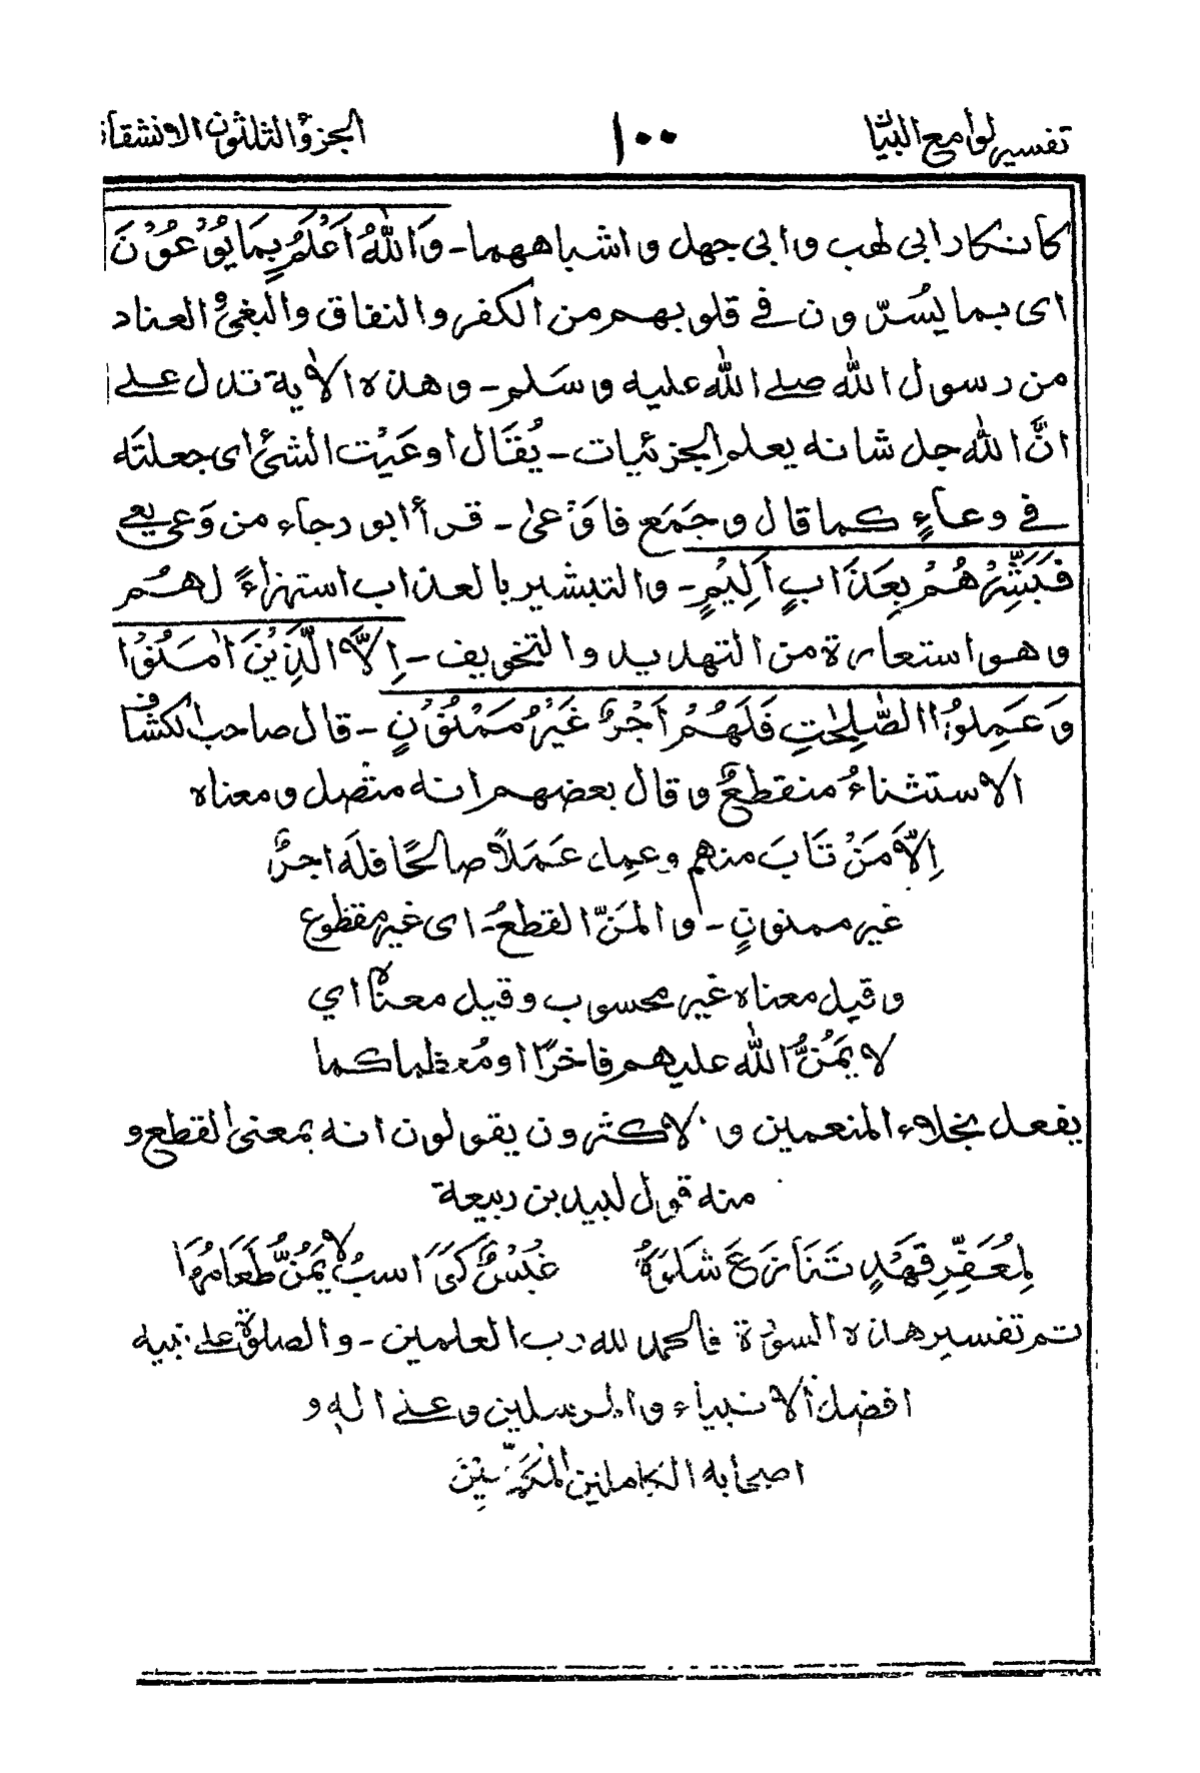 تفسير لوامع البيان ١٠٠ الجزؤ الثلثون الانشقاق
كانكار ابى لهب و ابى جهل و اشباههما ـ وَاللهُ اَعْلَمُ بِمَا يُوْعُوْنَ
اى بما يُسَرّون فى قلوبهم من الكفر والنفاق والبغىْ والعناد
من رسول الله صلے الله عليه وسَلم ـ وهذه الاٰية تدل علے
انَّ الله جل شانه يعلم الجزئيات ـ يُقَال اوعَيْت الشئ اى جعلتَه
فى وعاءٍ كما قال وجَمَع فاَوْعىٰ ـ قرأ ابو رجاء من وَعى يعى
فَبَشِّرْهُمْ بِعَذَابٍ اَلِيْمٍ ـ والتبشير بالعذاب استهزاءً لهُم
وهو استعارة من التهديد والتخويف ـ اِلَّا الَّذِيْنَ اٰمَنُوْا
وَعَمِلُوا الصّٰلِحٰتِ فَلَهُمْ اَجْرٌ غَيْرُ مَمْنُوْنٍ ـ قال صاحب الكشاف
الاستثناءُ منقطعٌ وقال بعضهم انه متصل ومعناه
اِلَّا مَنْ تَابَ منهم وعمِل عَمَلًا صالحًا فلَه اجرٌ
غير ممنونٍ ـ والمَنّ القطعُ ـ اى غير مقطوع
وقيل معناه غير محسوب وقيل معناه اي
لا يَمُنُّ الله عليهم فاخرًا او مُعظما كما
يفعل بخلاء المنعمين والاكثرون يقولون انه بمعنى القطع و
منه قول لبيد بن ربيعة
لِمُعَفِّرِ قَهْدٍ تَنَازَعَ شَلْوَهٗ غُبْسٌ كَوَاسبُ لا يُمَنُّ طَعَامُهَا
تم تفسير هذه السورة فالحمد لله رب العلمين ـ والصلوٰة علے نبيه
افضل الانبياء والمرسلين وعلے اٰله و
اصحابه الكاملين المكرّمين